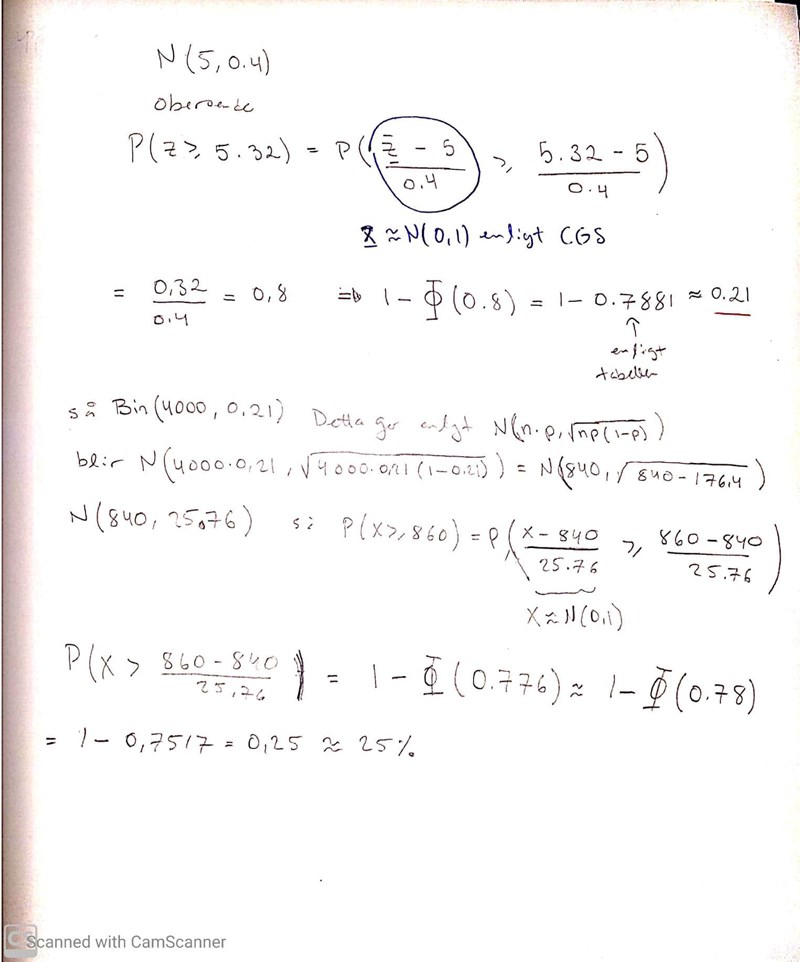 N(5, 0.4)
Oberoende
P(Z ≥ 5.32) = P( (Z̄ - 5)/0.4 ≥ (5.32 - 5)/0.4 )
X ≈ N(0,1) enligt CGS
= 0,32/0.4 = 0,8 ⇒ 1 - Φ(0.8) = 1 - 0.7881 ≈ 0.21
↑
enligt
tabellen
så Bin(4000, 0,21) Detta ger enligt N(n·p, √np(1-p))
blir N(4000·0,21, √4000·0,21(1-0.21)) = N(840, √840-176,4)
N(840, 25,76) så P(X ≥ 860) = P( (X - 840)/25.76 ≥ (860-840)/25.76 )
X ≈ N(0,1)
P(X > (860-840)/25,76) = 1 - Φ(0.776) ≈ 1 - Φ(0.78)
= 1 - 0,7517 = 0,25 ≈ 25%
CS Scanned with CamScanner